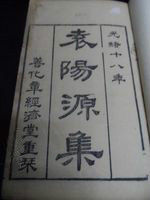 光緒十八年
袁陽源集
善化章經濟堂重栞